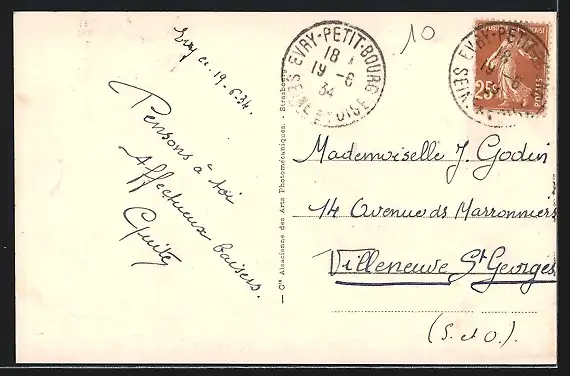 Evry ce. 19.6.34.
Pensons à toi
Affectueux baisers.
Cie Alsacienne des Arts Photomécaniques - Strasbourg
EVRY-PETIT-BOURG
18
19 - 6
34
SEINE ET OISE
10
EVRY-PETIT
25c
POSTES
Mademoiselle J. Godin
14 Avenue ds Marronniers
Villeneuve St Georges
(S. et O.)